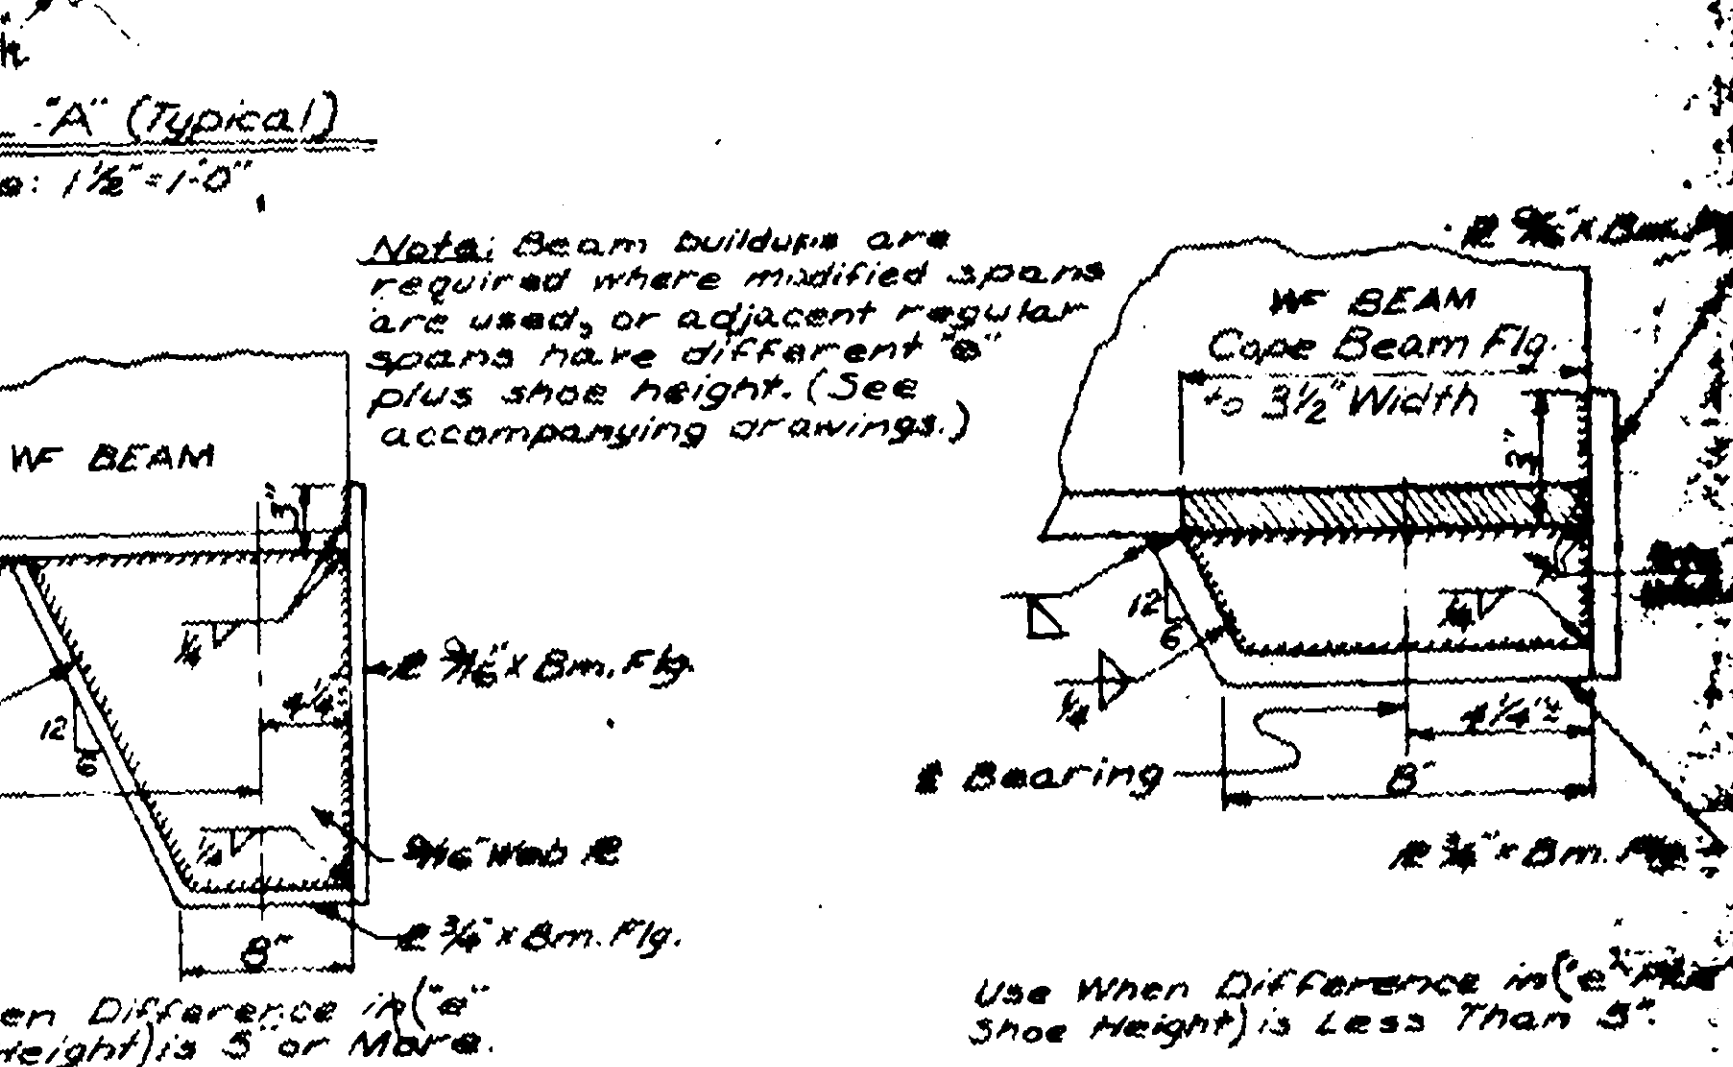 "A" (Typical)
: 1½"=1'-0"
Note: Beam buildups are
required where modified spans
are used, or adjacent regular
spans have different "e"
plus shoe height. (See
accompanying drawings.)
WF BEAM
3"
¼
12
6
4¼"
℄ 9/16" x Bm. Flg.
¼
9/16" Web ℄
℄ ¾" x Bm. Flg.
8"
Difference in ("e"
Height) is 5" or More.
9/16" x Bm.
WF BEAM
Cope Beam Flg.
to 3½" Width
3"
12
6
¼
¼
4¼"±
℄ Bearing
8"
¾" x Bm. Flg.
Use When Difference in ("e" Plus
Shoe Height) is Less Than 5".